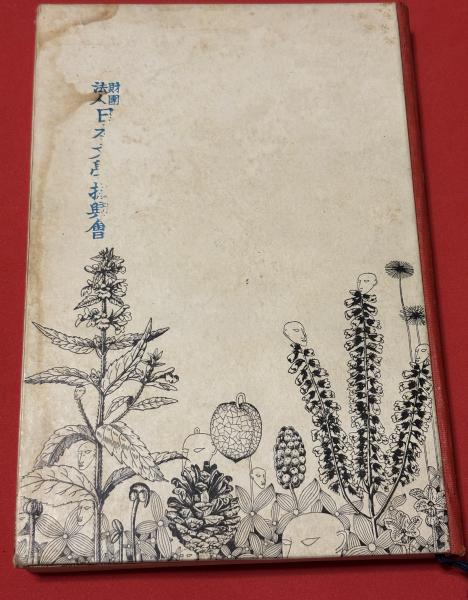 財團
法人日本文學振興會